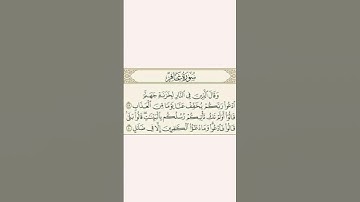 سورة غافر
وَقَالَ ٱلَّذِينَ فِى ٱلنَّارِ لِخَزَنَةِ جَهَنَّمَ
ٱدْعُوا۟ رَبَّكُمْ يُخَفِّفْ عَنَّا يَوْمًا مِّنَ ٱلْعَذَابِ ٤٩
قَالُوٓا۟ أَوَلَمْ تَكُ تَأْتِيكُمْ رُسُلُكُم بِٱلْبَيِّنَٰتِ قَالُوا۟ بَلَىٰ
قَالُوا۟ فَٱدْعُوا۟ وَمَا دُعَٰٓؤُا۟ ٱلْكَٰفِرِينَ إِلَّا فِى ضَلَٰلٍ ٥٠